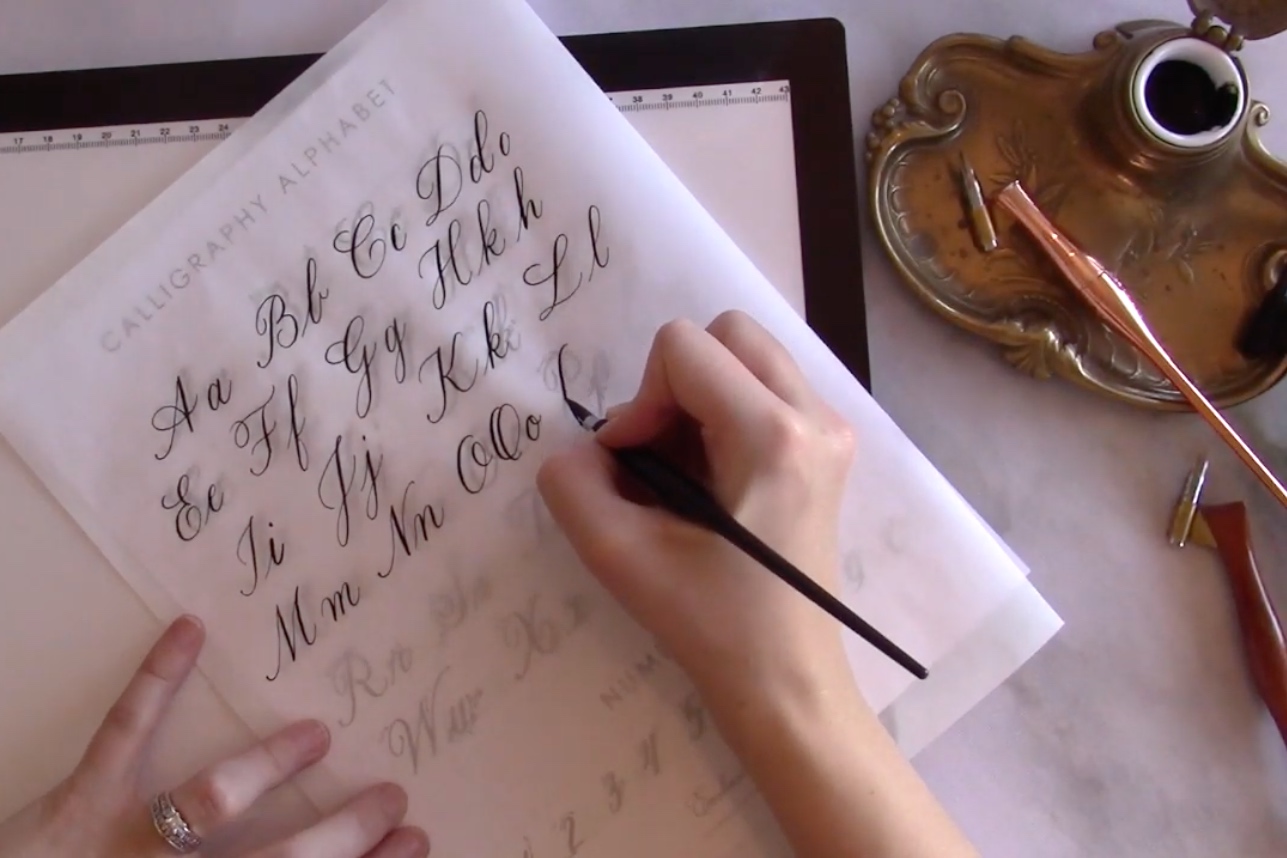 17 18 19 20 21 22 23 24
38 39 40 41 42 43
CALLIGRAPHY ALPHABET
Aa Bb Cc Dd
Ee Ff Gg H h
Ii Jj Kk Ll
Mm Nn Oo Pp
Rr Ss T
Ww Xx
NUM
2 3 4 5
9